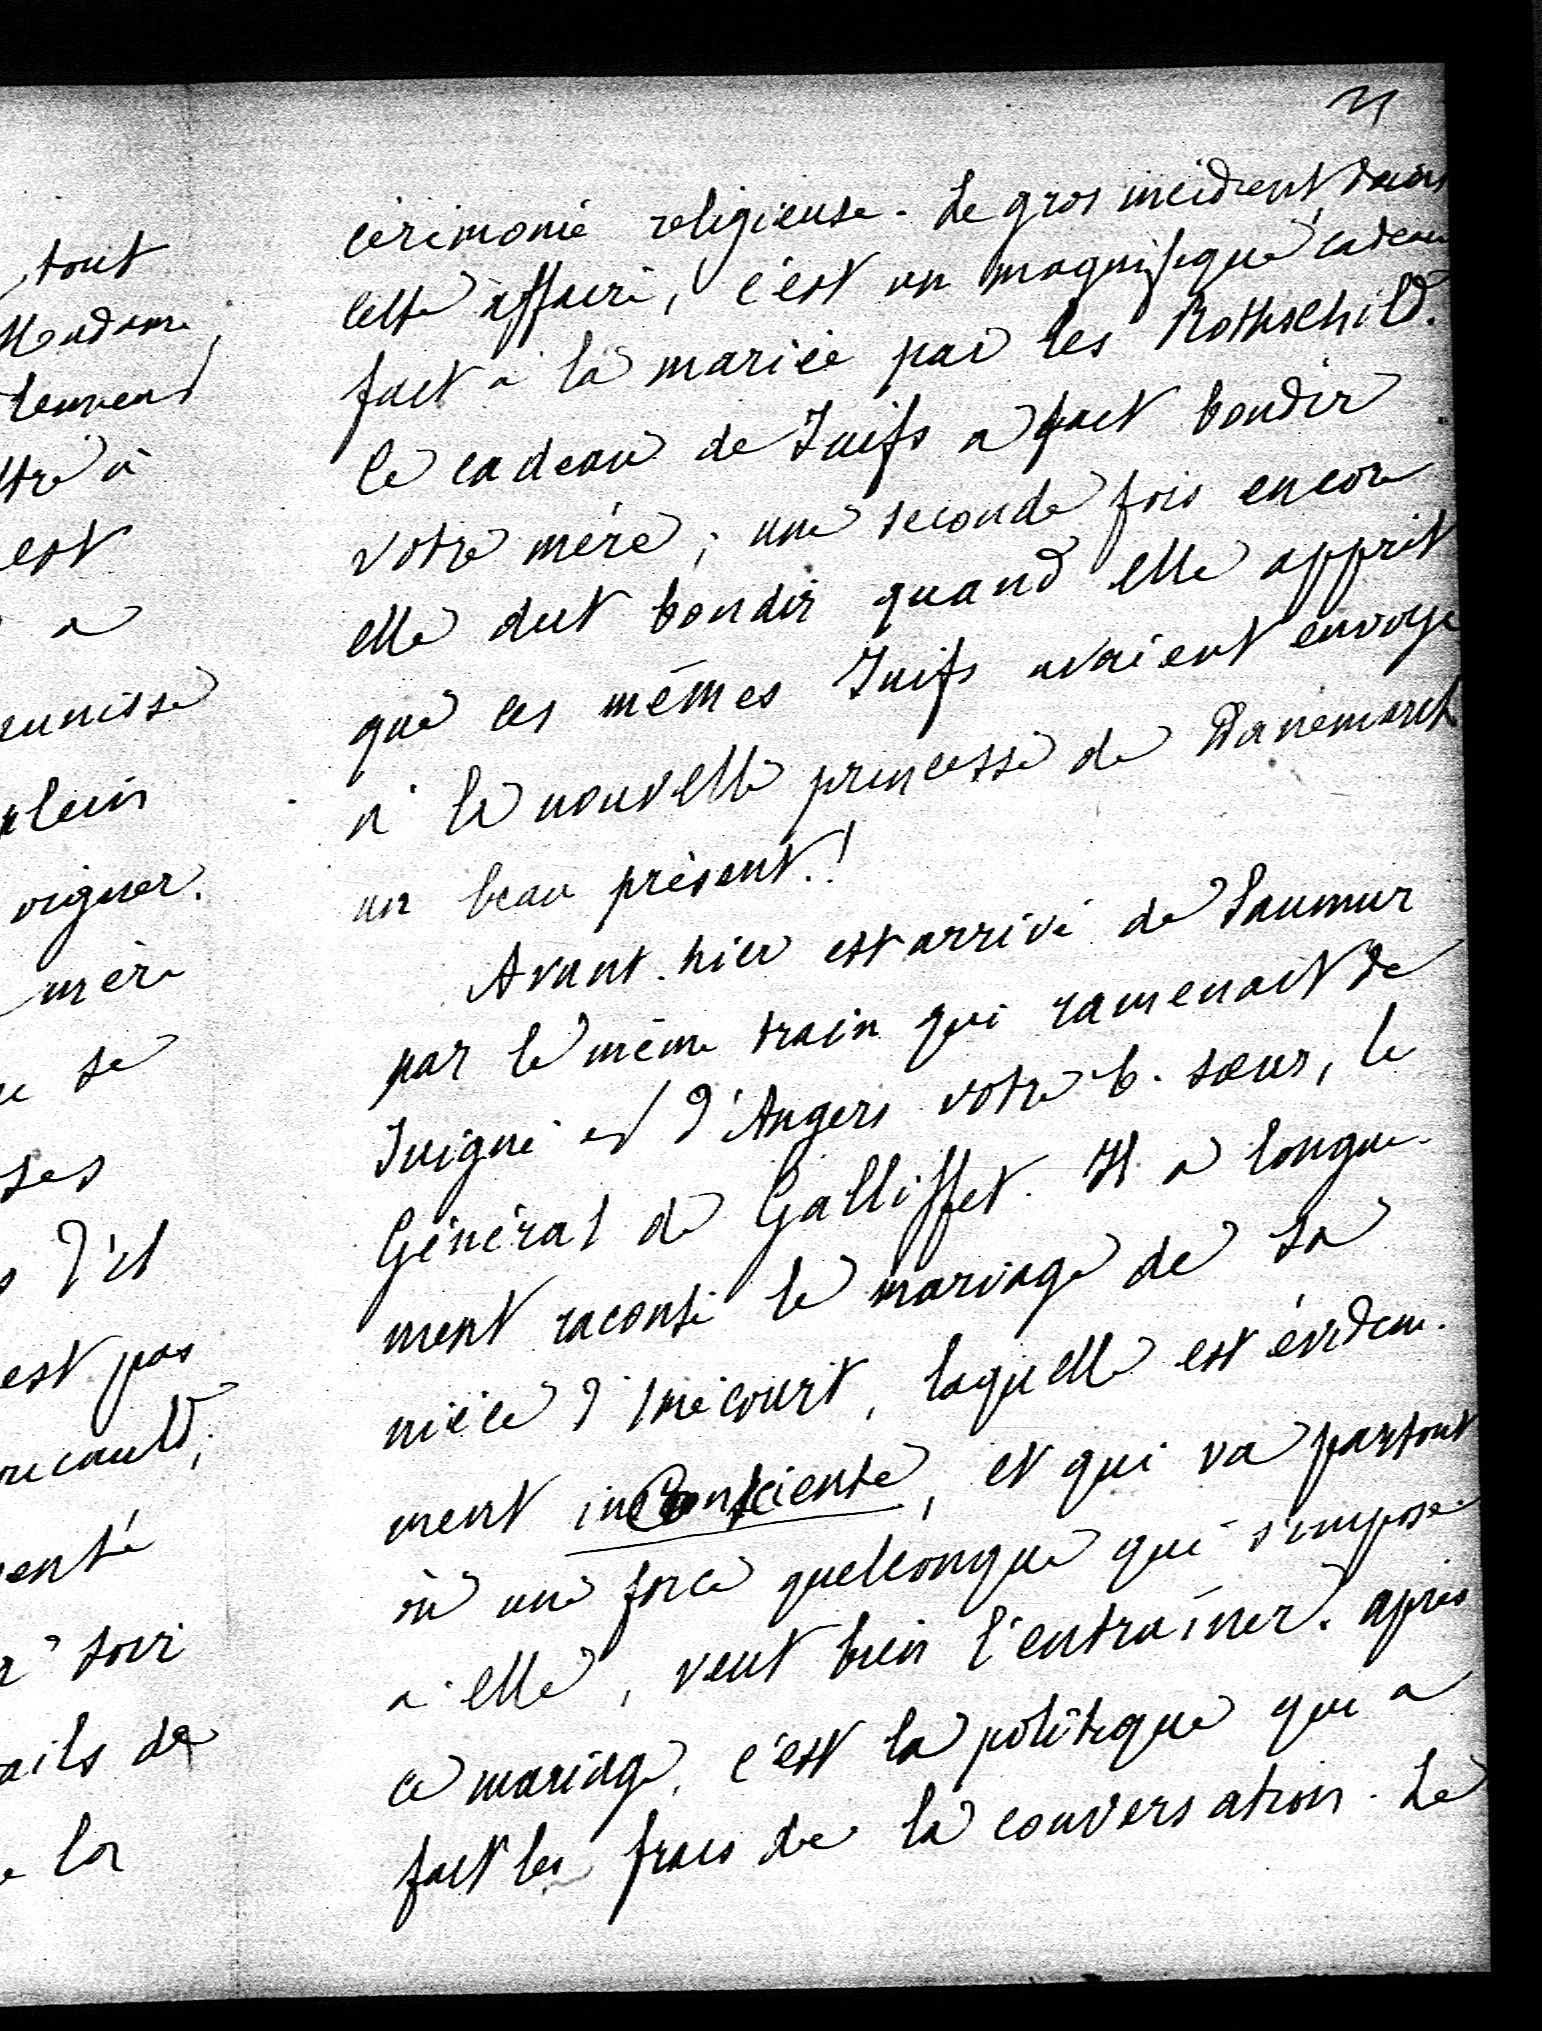 cérémonie religieuse. Le gros incident dans
cette affaire, c'est un magnifique cadeau
fait à la mariée par les Rothschild.
Ce cadeau de Juifs a fait bondir
votre mère ; une seconde fois encore
elle dut bondir quand elle apprit
que ces mêmes Juifs avaient envoyé
à la nouvelle princesse de Danemarck
un beau présent !
Avant-hier est arrivé de Saumur
par le même train qui ramenait de
Juigné et d'Angers votre b. sœur, le
Général de Galliffet. Il a longue-
ment raconté le mariage de sa
nièce d'Imécourt, laquelle est évidem-
ment inconsciente, et qui va partout
où une force quelconque qui s'impose
à elle, veut bien l'entraîner. après
ce mariage, c'est la politique qui a
fait les frais de la conversation. Le
tout
Madame,
est
a
unisse
mère
se
ses
d'il
est pas
ails de
la